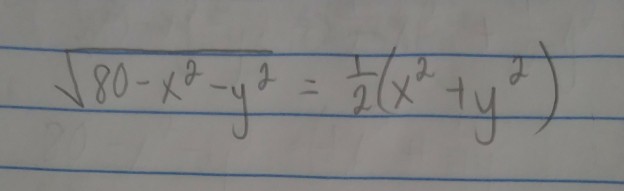 √(80-x²-y²) = ½(x²+y²)